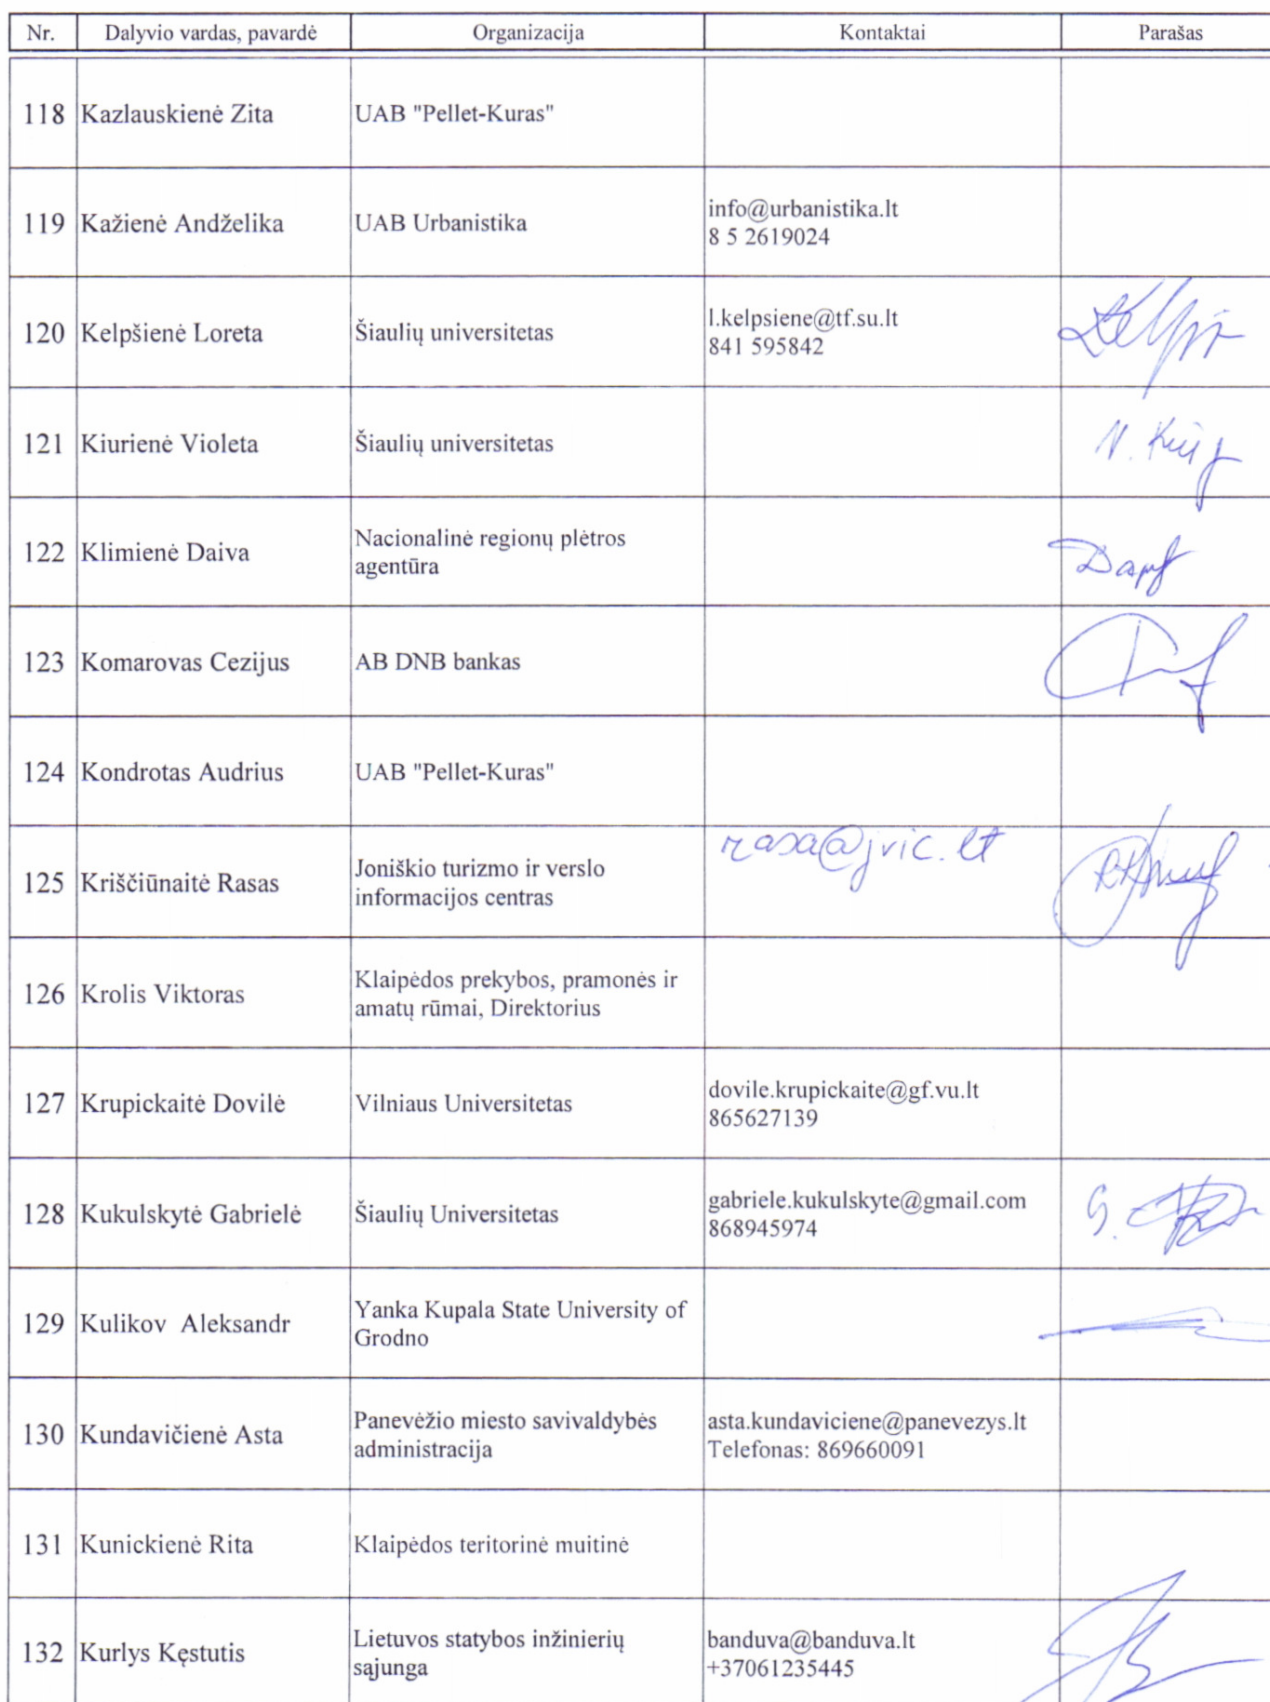 Nr. Dalyvio vardas, pavardė Organizacija Kontaktai Parašas
118 Kazlauskienė Zita UAB "Pellet-Kuras"
119 Kažienė Andželika UAB Urbanistika info@urbanistika.lt
8 5 2619024
120 Kelpšienė Loreta Šiaulių universitetas l.kelpsiene@tf.su.lt
841 595842
121 Kiurienė Violeta Šiaulių universitetas
122 Klimienė Daiva Nacionalinė regionų plėtros
agentūra
123 Komarovas Cezijus AB DNB bankas
124 Kondrotas Audrius UAB "Pellet-Kuras"
rasa@jvic.lt
125 Kriščiūnaitė Rasas Joniškio turizmo ir verslo
informacijos centras
126 Krolis Viktoras Klaipėdos prekybos, pramonės ir
amatų rūmai, Direktorius
127 Krupickaitė Dovilė Vilniaus Universitetas dovile.krupickaite@gf.vu.lt
865627139
128 Kukulskytė Gabrielė Šiaulių Universitetas gabriele.kukulskyte@gmail.com
868945974
129 Kulikov Aleksandr Yanka Kupala State University of
Grodno
130 Kundavičienė Asta Panevėžio miesto savivaldybės
administracija asta.kundaviciene@panevezys.lt
Telefonas: 869660091
131 Kunickienė Rita Klaipėdos teritorinė muitinė
132 Kurlys Kęstutis Lietuvos statybos inžinierių
sąjunga banduva@banduva.lt
+37061235445